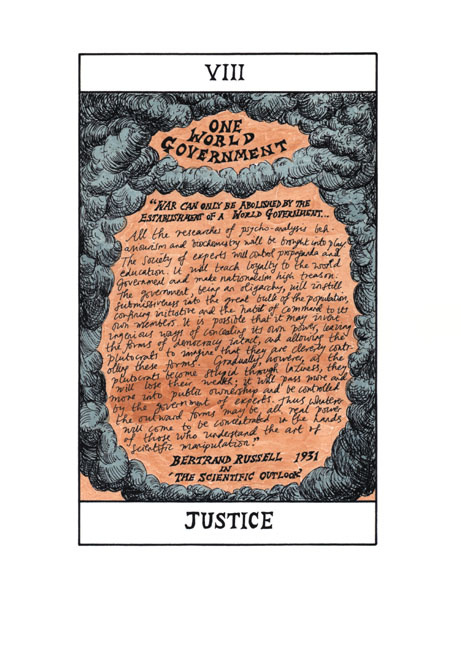 VIII
ONE
WORLD
GOVERNMENT
"WAR CAN ONLY BE ABOLISHED BY THE
ESTABLISHMENT OF A WORLD GOVERNMENT...
All the researches of psycho-analysis beh-
aviourism and biochemistry will be brought into play
The society of experts will control propaganda and
education. It will teach loyalty to the world
government and make nationalism high treason.
The government, being an oligarchy, will instill
submissiveness into the great bulk of the population,
confining initiative and the habit of command to its
own members. It is possible that it may invent
ingenious ways of concealing its own power, leaving
the forms of democracy intact, and allowing the
plutocrats to imagine that they are cleverly contr-
olling these forms. Gradually, however, as the
plutocrats become stupid through laziness, they
will lose their wealth; it will pass more and
more into public ownership and be controlled
by the government of experts. Thus whatever
the outward forms may be, all real power
will come to be concentrated in the hands
of those who understand the art of
scientific manipulation."
BERTRAND RUSSELL 1931
IN
'THE SCIENTIFIC OUTLOOK'
JUSTICE